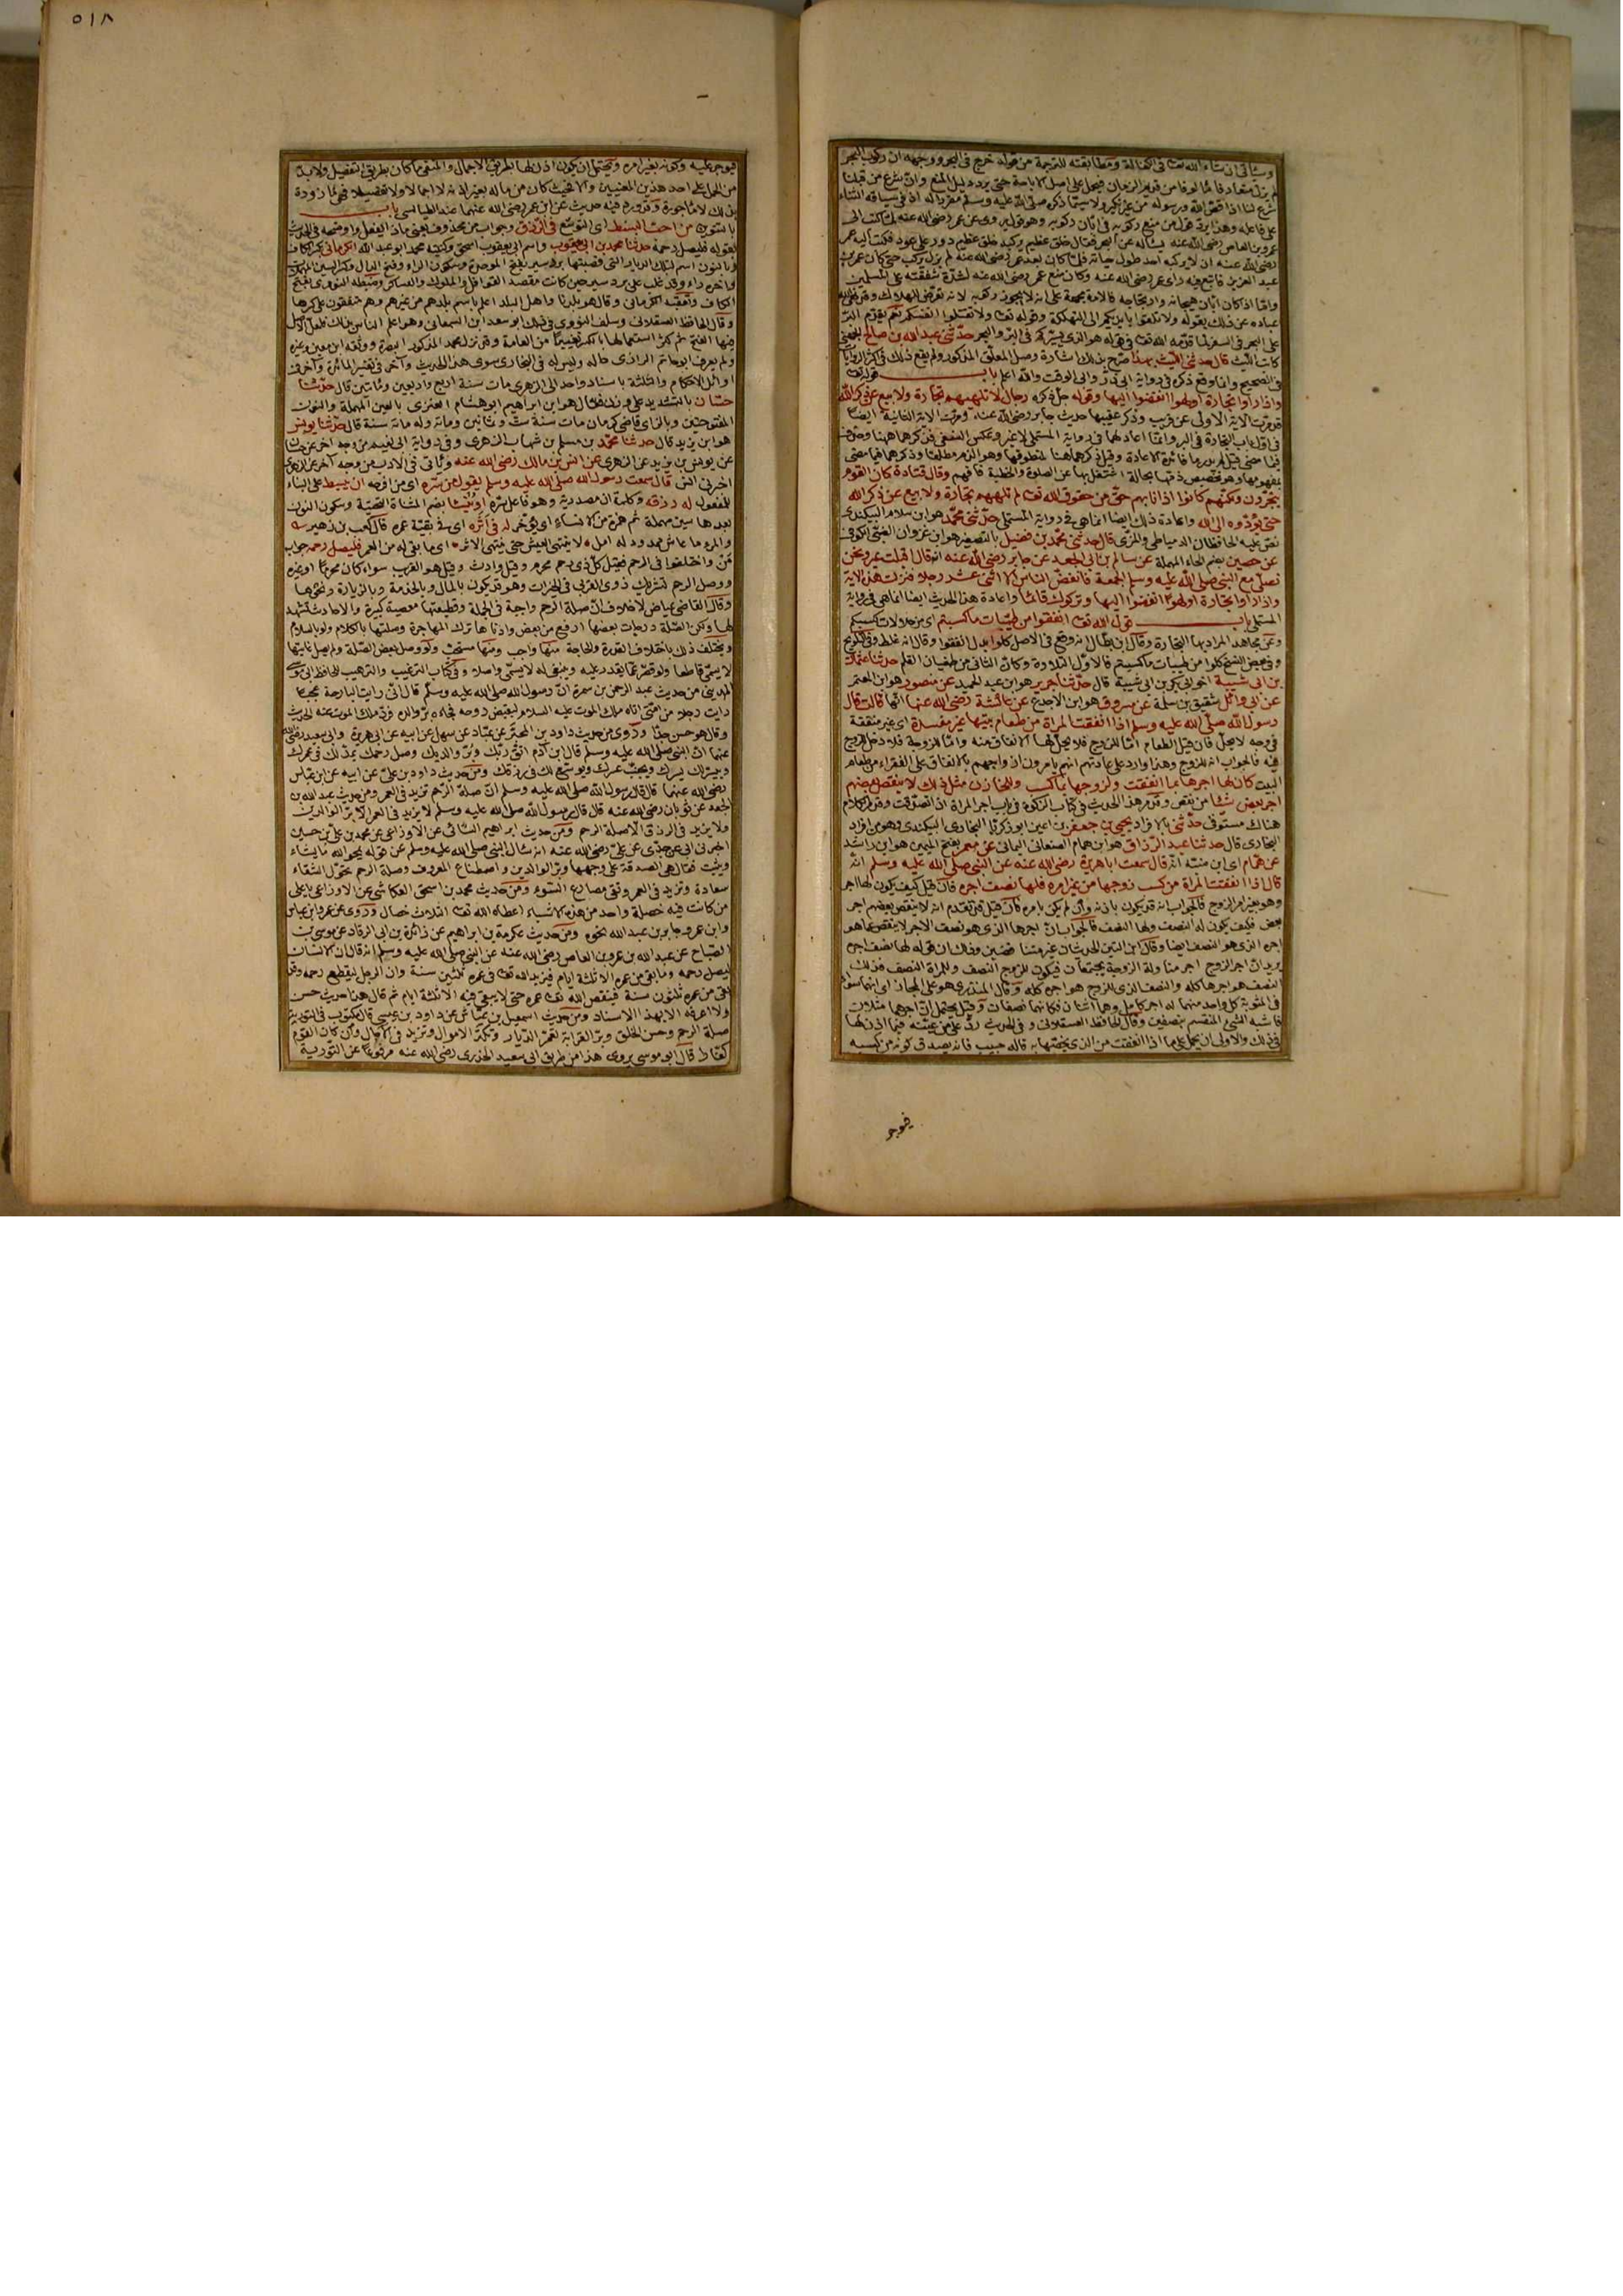 وسيأتي ان شاء الله تعا في الكفالة ومطابقته للترجمة من قوله خرج في البحر ووجهه ان ركوب البحر
لم يزل متعارفا مألوفا من قديم الزمان فيحمل على اصل الاباحة حتى يرد دليل المنع وان شرع من قبلنا
شرع لنا اذا قص الله ورسوله من غير نكير ولا سيما ذكره صلى الله عليه وسلم مقررا له او في سياقه الثناء
على فاعله وهذا يرد قول من منع ركوبه في ابان ركوبه وهو قول يروى عن عمر رضي الله عنه لما كتب الى
عمرو بن العاص رضي الله عنه يسأله عن البحر فقال خلق عظيم يركبه خلق عظيم دود على عود فكتب اليه عمر
رضي الله عنه ان لا يركبه احد طول حياته فلما كان بعد عمر رضي الله عنه لم يزل يركب حتى كان عمر بن
عبد العزيز فاتبع فيه رأي عمر رضي الله عنه وكان منع عمر رضي الله عنه لشدة شفقته على المسلمين
واما اذا كان ابان هيجانه وارتجاجه فالامة مجمعة على انه لا يجوز ركوبه لانه تعرض للهلاك وقد نهى الله
عباده عن ذلك بقوله ولا تلقوا بايديكم الى التهلكة وقوله تعا ولا تقتلوا انفسكم
على البحر في السفر قوله هو الذي يسيركم في البر والبحر حدثني عبد الله بن صالح الجهني
كاتب الليث قال حدثني الليث بهذا صرح بذلك اشارة وصل المعلق المذكور ولم يقع ذلك في اكثر الروايات
في الصحيح وانما وقع ذكره في رواية ابي ذر وابي الوقت والله اعلم باب قوله تعا
واذا رأوا تجارة او لهوا انفضوا اليها وقوله جل ذكره رجال لا تلهيهم تجارة ولا بيع عن ذكر الله
قد مرت الاية الاولى عن قريب وذكر عقيبها حديث جابر رضي الله عنه ومرت الاية الثانية ايضا
في اول باب التجارة في البر وانما اعادهما في رواية المستملي لا غير وعكس النسفي فذكرهما ههنا وحذفهما
فيما مضى
يتجرون ولكنهم كانوا اذا نابهم حق من حقوق الله تعا لم تلههم تجارة ولا بيع عن ذكر الله
حتى يؤدوه الى الله واعادة ذلك ايضا انما هي في رواية المستملي حدثني محمد هو ابن سلام البيكندي
نص عليه الحافظان الدمياطي والمزي قال حدثني محمد بن فضيل بالتصغير هو ابن غزوان الضبي الكوفي
عن حصين بضم الحاء المهملة عن سالم بن ابي الجعد عن جابر رضي الله عنه انه قال اقبلت عير ونحن
نصلي مع النبي صلى الله عليه وسلم الجمعة فانفض الناس الا اثنى عشر رجلا فنزلت هذه الاية
واذا رأوا تجارة او لهوا انفضوا اليها وتركوك قائما واعادة هذا الحديث ايضا انما هي في رواية
المستملي باب قول الله تعا انفقوا من طيبات ما كسبتم اي من حلالات كسبكم
وعن مجاهد المراد بها التجارة وقال ابن بطال انه وقع في الاصل كلوا بدل انفقوا وقال انه غلط وفي التلويح
وفي بعض النسخ كلوا من طيبات ما كسبتم فالاول التلاوة وكان الثاني من طغيان القلم حدثنا عثمان
بن ابي شيبة اخو ابي بكر بن ابي شيبة قال حدثنا جرير هو ابن عبد الحميد عن منصور هو ابن المعتمر
عن ابي وائل شقيق بن سلمة عن مسروق هو ابن الاجدع عن عائشة رضي الله عنها انها قالت قال
رسول الله صلى الله عليه وسلم اذا انفقت المرأة من طعام بيتها غير مفسدة اي غير منفقة
في وجه لا يحل فان قيل الطعام اما للزوج فلا يحل لها الانفاق منه واما للزوجة فلا دخل للزوج
فيه فالجواب انه للزوج وهذا وارد على عادتهم انهم يأمرون ازواجهم بالانفاق على الفقراء من طعام
البيت كان لها اجرها بما انفقت ولزوجها بما كسب وللخازن مثل ذلك لا ينقص بعضهم
اجر بعض شيئا من ينقص وقد مر هذا الحديث في كتاب الزكوة في باب اجر المرأة اذا تصدقت وقد مر الكلام
هناك مستوفى حدثني بالافراد يحيى بن جعفر بن اعين ابو زكريا البخاري البيكندي وهو من افراد
البخاري قال حدثنا عبد الرزاق هو ابن همام الصنعاني اليماني عن معمر بفتح الميمين هو ابن راشد
عن همام اي ابن منبه انه قال سمعت ابا هريرة رضي الله عنه عن النبي صلى الله عليه وسلم انه
قال اذا انفقت المرأة من كسب زوجها من غير امره فلها نصف اجره فان قيل كيف يكون لها اجر
وهو بغير امر الزوج فالجواب انه قد يكون باذنه وان لم يكن بامره فان قيل قد تقدم انه لا ينقص بعضهم اجر
بعض فكيف يكون له النصف ولها النصف فالجواب ان اجرها الذي هو نصف الاجر لا ينقص عما هو
اجره الذي هو النصف ايضا وقال ابن التين الحديثان غير متناقضين وذلك ان قوله لها نصف اجره
يريد ان اجر الزوج اجر مناولة الزوجة يجتمعان فيكون للزوج النصف وللمرأة النصف فذلك
النصف هو اجرها كله والنصف الذي للزوج هو اجره كله وقال المنذري هو على المجاز اي انهما سواء
في المثوبة كل واحد منهما له اجر كامل وهما اثنان فكانهما نصفان وقيل يحتمل ان اجرهما مثلان
فاشبه الشيء المنقسم بنصفين وقال الحافظ العسقلاني وفي الحديث رد على من عينه فيما اذن لها
في ذلك والاولى ان يحمل على ما اذا انفقت من الذي يخصها به قاله حبيب فانه يصدق كونه من كسبه
فيوجر
٥١٨
فيوجر عليه وكونه بغير امره ويحتمل ان يكون اذن لها بطريق الاجمال والمنفي ما كان بطريق التفصيل ولا بد
من الحمل على احد هذين المعنيين والا فحيث كان من ماله بغير اذنه لا اجمالا ولا تفصيلا فهي مأزورة
بذلك لا مأجورة وقد ورد فيه حديث عن ابن عمر رضي الله عنهما عند الطيالسي باب
بالتنوين من احب البسط اي التوسع في الرزق وجواب من محذوف
لقوله فليصل رحمه حدثنا محمد بن ابي يعقوب واسم ابي يعقوب اسحق وكنيته محمد ابو عبد الله الكرماني بكسر الكاف
وبالنون اسم لتلك الديار التي قصبتها بردسير بفتح الموحدة وسكون الراء وفتح الدال وكسر السين المهملات
وآخره راء وقد غلب على بردسير حين كانت مقصد القوافل والملوك والعساكر وضبطه النووي بفتح
الكاف وتعقبه الكرماني وقال هو بلدنا واهل البلد اعلم باسم بلدهم من غيرهم وهم متفقون على كسرها
وقال الحافظ العسقلاني وسلف النووي في ذلك ابو سعد ابن السمعاني وهو اعلم الناس بذلك فلعل الاصل
فيها الفتح ثم كثر استعمالها بالكسر تغييرا من العامة وقد نزل محمد المذكور البصرة ووثقه ابن معين وغيره
ولم يعرف ابو حاتم الرازي حاله وليس له في البخاري سوى هذا الحديث وآخر في تفسير المائدة وآخر في
اوائل الاحكام والثلثة باسناد واحد الى الزهري مات سنة اربع واربعين ومائتين قال حدثنا
حسان بالتشديد على وزن فعال هو ابن ابراهيم ابو هشام العنزي بالعين المهملة والنون
المفتوحتين وبالزاي قاضي كرمان مات سنة ست وثمانين ومائة وله مائة سنة قال حدثنا يونس
هو ابن يزيد قال حدثنا محمد بن مسلم بن شهاب الزهري وفي رواية ابي نعيم من وجه اخر عن حسان
عن يونس بن يزيد عن الزهري عن انس بن مالك رضي الله عنه وسيأتي في الادب من وجه آخر عن الزهري
اخبرني انس قال سمعت رسول الله صلى الله عليه وسلم يقول من سره اي من افرحه ان يبسط على البناء
للمفعول له رزقه وكلمة ان مصدرية وهو فاعل سره او ينسأ بضم المثناة التحتية وسكون النون
بعدها سين مهملة ثم همزة من الانساء اي يؤخر له في اثره اي في بقية عمره قال كعب بن زهير
والمرء ما عاش ممدود له امل لا ينتهي العيش حتى ينتهي الاثر اي ما بقي له من العمر فليصل رحمه جواب
من واختلفوا في الرحم فقيل كل ذي رحم محرم وقيل وارث وقيل هو القريب سواء كان محرما او غيره
ووصل الرحم تشريك ذوي القربى في الخيرات وهو قد يكون بالمال وبالخدمة وبالزيارة ونحوها
وقال القاضي عياض لا خلاف ان صلة الرحم واجبة في الجملة وقطيعتها معصية كبيرة والاحاديث تشهد
لها ولكن الصلة درجات بعضها ارفع من بعض وادناها ترك المهاجرة وصلتها بالكلام ولو بالسلام
ويختلف ذلك باختلاف القدرة والحاجة منها واجب ومنها مستحب ولو وصل بعض الصلة ولم يصل غايتها
لا يسمى قاطعا ولو قصر عما يقدر عليه وينبغي له لا يسمى واصلا وفي كتاب الترغيب والترهيب للحافظ ابي موسى
المديني من حديث عبد الرحمن بن سمرة ان رسول الله صلى الله عليه وسلم قال اني رأيت البارحة عجبا
رأيت رجلا من امتي اتاه ملك الموت عليه السلام ليقبض روحه فجاءه بر والده فرد ملك الموت عنه الحديث
وقال هو حسن جدا وروى من حديث داود بن المحبر عن عباد عن سهل عن ابيه عن ابي هريرة وابي سعيد رضي الله
عنهما ان النبي صلى الله عليه وسلم قال ابن آدم اتق ربك وبر والديك وصل رحمك يمد لك في عمرك
وييسر لك يسرك ويجنب عسرك ويوسع لك في رزقك ومن حديث داود بن علي عن ابيه عن ابن عباس
رضي الله عنهما قال قال رسول الله صلى الله عليه وسلم ان صلة الرحم تزيد في العمر ومن حديث عبد الله بن
الجعد عن ثوبان رضي الله عنه قال قال رسول الله صلى الله عليه وسلم لا يزيد في العمر الا بر الوالدين
ولا يزيد في الرزق الا صلة الرحم ومن حديث ابراهيم الشامي عن الاوزاعي عن محمد بن علي بن حسين
اخبرني ابي عن جدي عن علي رضي الله عنه انه سأل النبي صلى الله عليه وسلم عن قوله يمحو الله ما يشاء
ويثبت فقال هي الصدقة على وجهها وبر الوالدين واصطناع المعروف وصلة الرحم تحول الشقاء
سعادة وتزيد في العمر وتقي مصارع السوء ومن حديث محمد بن اسحق العكاشي عن الاوزاعي يا علي
من كانت فيه خصلة واحد من هذه الاشياء اعطاه الله تعا الثلاث خصال وروى عن عمر وابن عباس
وابن عمر وجابر بن عبد الله نحوه ومن حديث عكرمة بن ابراهيم عن زائدة بن ابي الرقاد عن موسى بن
الصباح عن عبد الله بن عمرو بن العاص رضي الله عنه عن النبي صلى الله عليه وسلم انه قال ان الانسان
ليصل رحمه وما بقي من عمره الا ثلثة ايام فيزيد الله تعا في عمره ثلثين سنة وان الرجل ليقطع رحمه وقد
بقي من عمره ثلثون سنة فينقص الله تعا عمره حتى لا يبقى فيه الا ثلثة ايام ثم قال هذا حديث حسن
ولا اعرفه الا بهذا الاسناد ومن حديث اسمعيل بن عياش عن داود بن عيسى قال مكتوب في التورية
صلة الرحم وحسن الخلق وبر القرابة تعمر الديار وتكثر الاموال وتزيد في الاجال وان كان القوم
كفارا قال ابو موسى يروى هذا من طريق ابي سعيد الخدري رضي الله عنه مرفوعا عن التورية